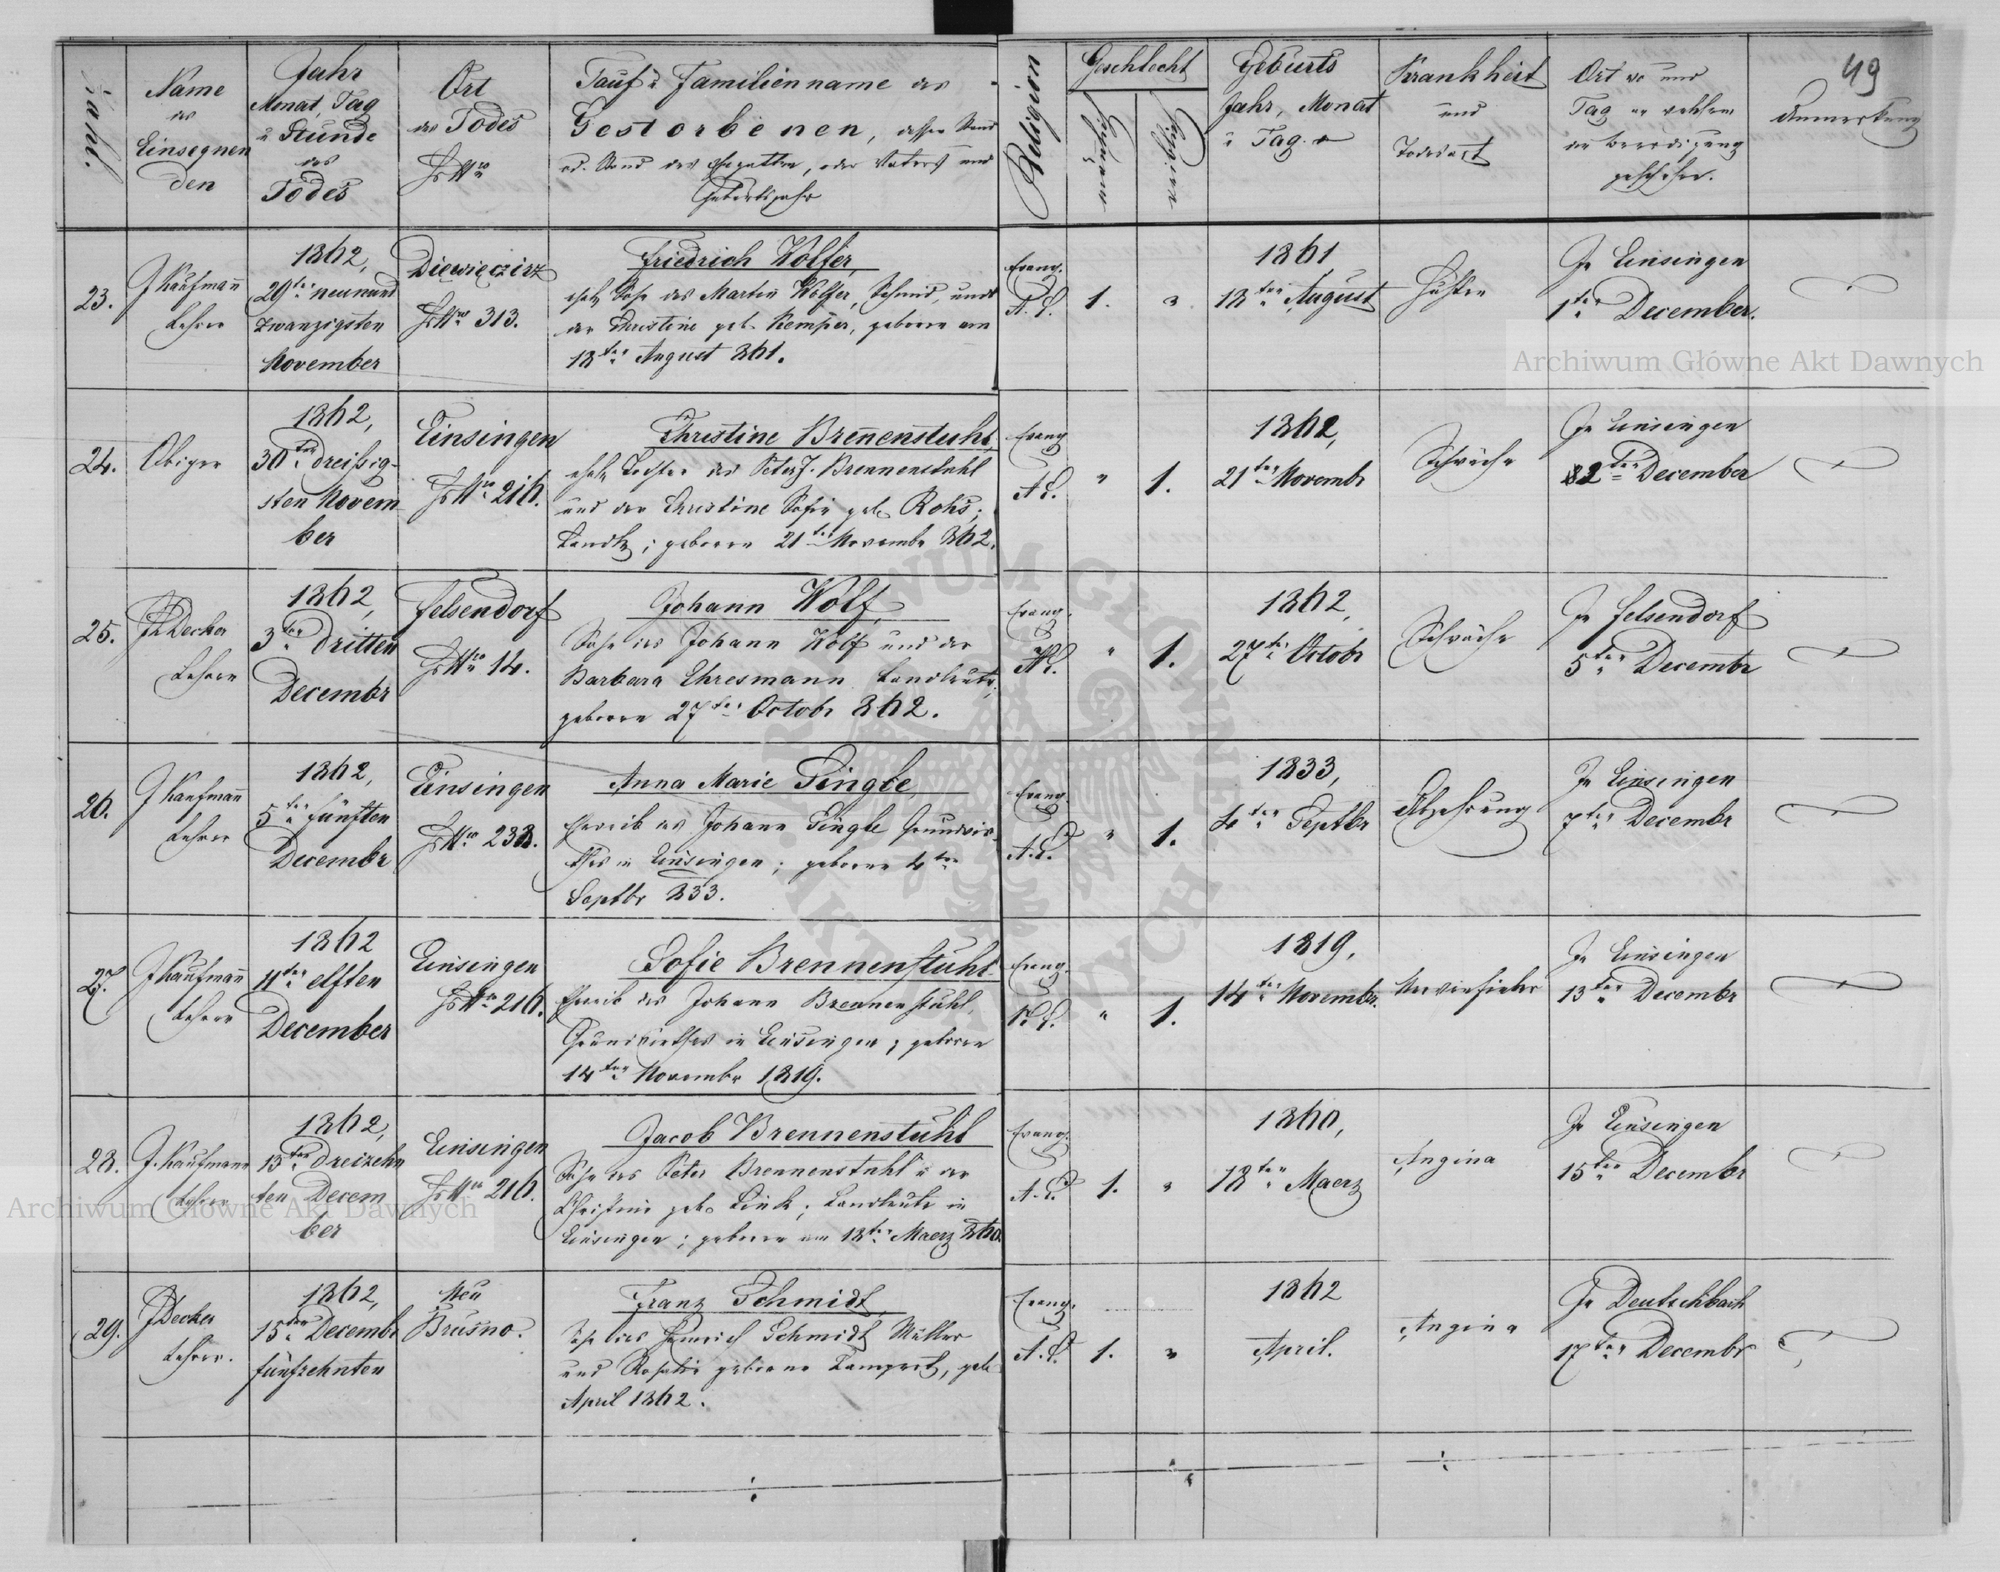 49
Zahl.
Name
des
Einsegnen
den
Jahr
Monat, Tag
u Stunde
des
Todes
Ort
des Todes
Hs Nro
Tauf u Familienname des
Gestorbenen, dessen Stand
od. Stand des Ehegatten, oder Vaters und
Geburtsjahr
Religion
Geschlecht
Geburts
Jahr, Monat
u Tag
Krankheit
und
Todesart
Ort wo und
Tag an welchem
die Beerdigung
geschehen.
Anmerkung
23.
J Kaufmann
Lehrer
1862,
29ten neunund
zwanzigsten
November
Diewięczirz
Hs Nro 313.
Friedrich Wolfer,
ehel. Sohn des Martin Wolfer, Schmid, und
der Christine geb. Kemper, geboren am
18ten August 861.
Evang.
A. C.
1.
"
1861
18ten August
Husten
In Einsingen
1ten December.
24.
Obiger
1862,
30ten dreißig-
sten Novem
ber
Einsingen
Hs Nro 216.
Christine Brennenstuhl,
ehel. Tochter des Peter J. Brennenstuhl
und der Christine Sofie geb. Rohs;
Landlt; geboren 21ten Novembr 862.
Evang
A C.
"
1.
1862,
21ten Novembr
Schwäche
In Einsingen
2ten December
25.
J Decker
Lehrer
1862,
3ten dritten
Decembr
Felsendorf
Hs Nro 14.
Johann Wolf,
Sohn des Johann Wolf und der
Barbara Ehresmann Landleute,
geboren 27ten Octobr 862.
Evang.
A C.
"
1.
1862,
27ten Octobr
Schwäche
In Felsendorf
5ten Decembr
26.
J Kaufmann
Lehrer
1862,
5ten fünften
Decembr
Einsingen
Hs Nro 238.
Anna Marie Gingle,
Eheweib des Johann Gingle Grundwir-
thes in Einsingen; geboren 4ten
Septbr 833.
Evang.
A. C.
"
1.
1833,
4ten Septbr
Abzehrung
In Einsingen
7ten Decembr
27.
J Kaufmann
Lehrer
1862
11ten elften
December
Einsingen
Hs Nro 216.
Sofie Brennenstuhl
Eheweib des Johann Brennenstuhl,
Grundwirthes in Einsingen; geboren
14ten Novembr 1819.
Evang.
A. C.
"
1.
1819,
14ten Novembr.
Nervenfieber
In Einsingen
13ten Decembr
28.
J. Kaufmann
Lehrer
1862,
13ten dreizehn
ten Decem
ber
Einsingen
Hs Nro 216.
Jacob Brennenstuhl
Sohn des Peter Brennenstuhl u der
Christine geb. Link; Landleute in
Einsingen; geboren am 18ten Maerz 860.
Evang.
A. C.
1.
"
1860,
18ten Maerz
Angina
In Einsingen
15ten Decembr
29.
J Decker
Lehrer.
1862,
15ten Decembr
fünfzehnten
Neu
Brusno.
Franz Schmidt,
Sohn des Heinrich Schmidt Müller
und Rosalie geborne Lampert, geb.
April 1862.
Evang.
A. C.
1.
"
1862
April.
Angina
In Deutschbach
17ten Decembr
Archiwum Główne Akt Dawnych
Archiwum Główne Akt Dawnych
ARCHIWUM GŁÓWNE AKT DAWNYCH